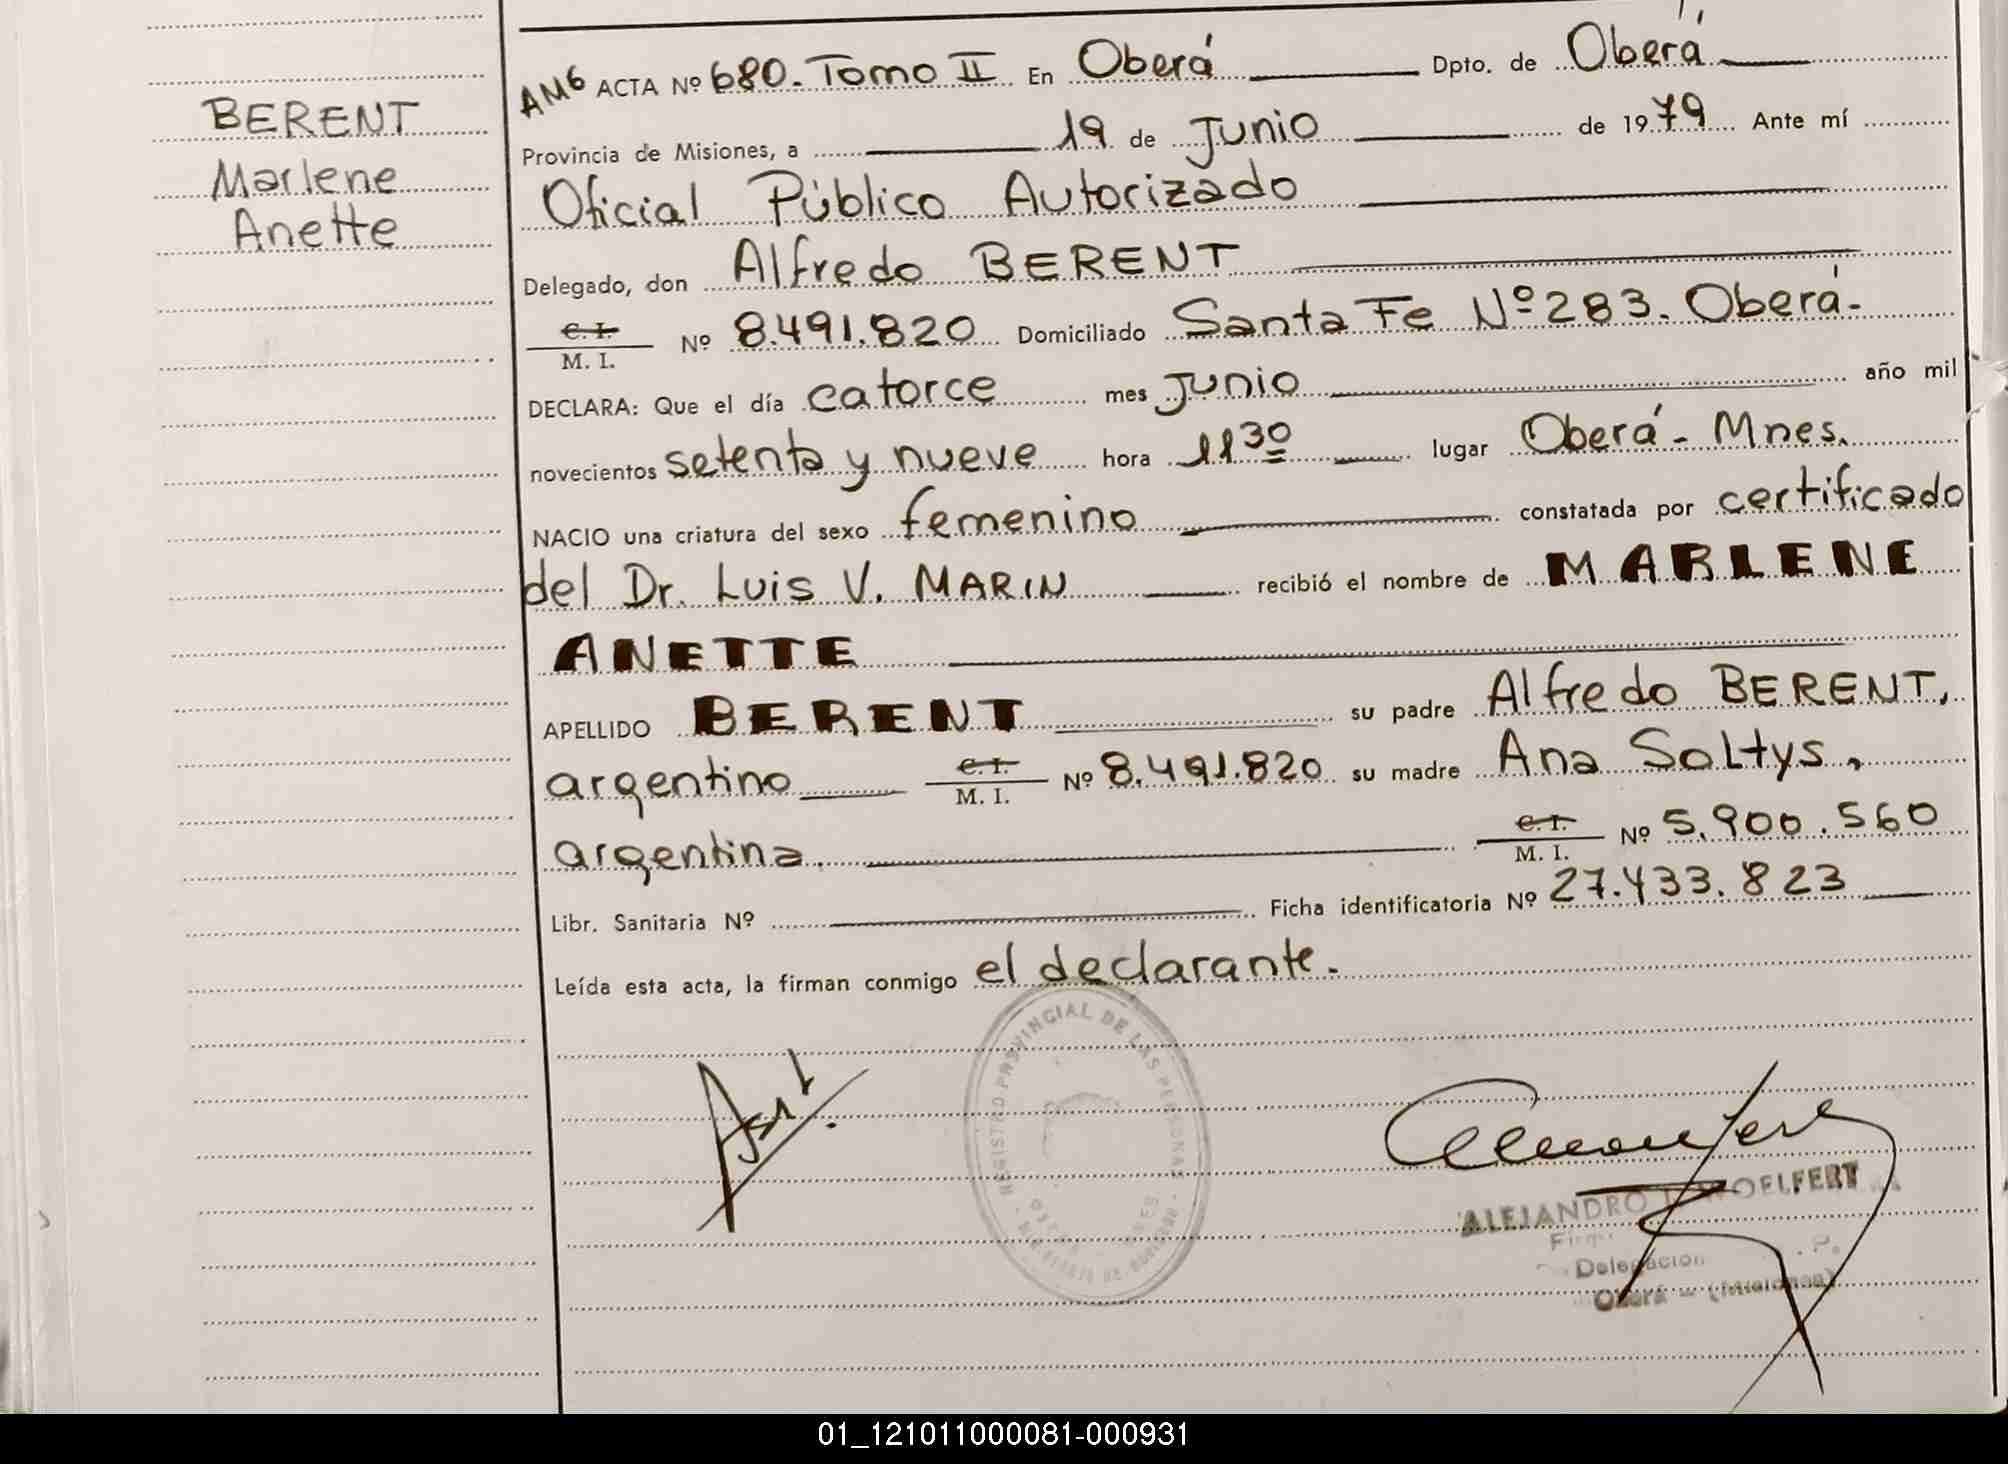 BERENT
Marlene
Anette
AM6 ACTA Nº 680. Tomo II En Oberá Dpto. de Oberá
Provincia de Misiones, a 19 de Junio de 1979 Ante mí
Oficial Público Autorizado
Delegado, don Alfredo BERENT
C. I.
M. I. Nº 8.491.820 Domiciliado Santa Fe Nº 283. Oberá.
DECLARA: Que el día catorce mes Junio año mil
novecientos setenta y nueve hora 11 30 lugar Oberá - Mnes.
NACIO una criatura del sexo femenino constatada por certificado
del Dr. Luis V. MARIN recibió el nombre de MARLENE
ANETTE
APELLIDO BERENT su padre Alfredo BERENT,
argentino C. I. M. I. Nº 8.491.820 su madre Ana Soltys,
argentina. C. I. M. I. Nº 5.900.560
Libr. Sanitaria Nº Ficha identificatoria Nº 27.433.823
Leída esta acta, la firman conmigo el declarante.
REGISTRO PROVINCIAL DE LAS PERSONAS
ALEJANDRO WOELFERT
Delegación
Oberá - (Misiones)
01_121011000081-000931